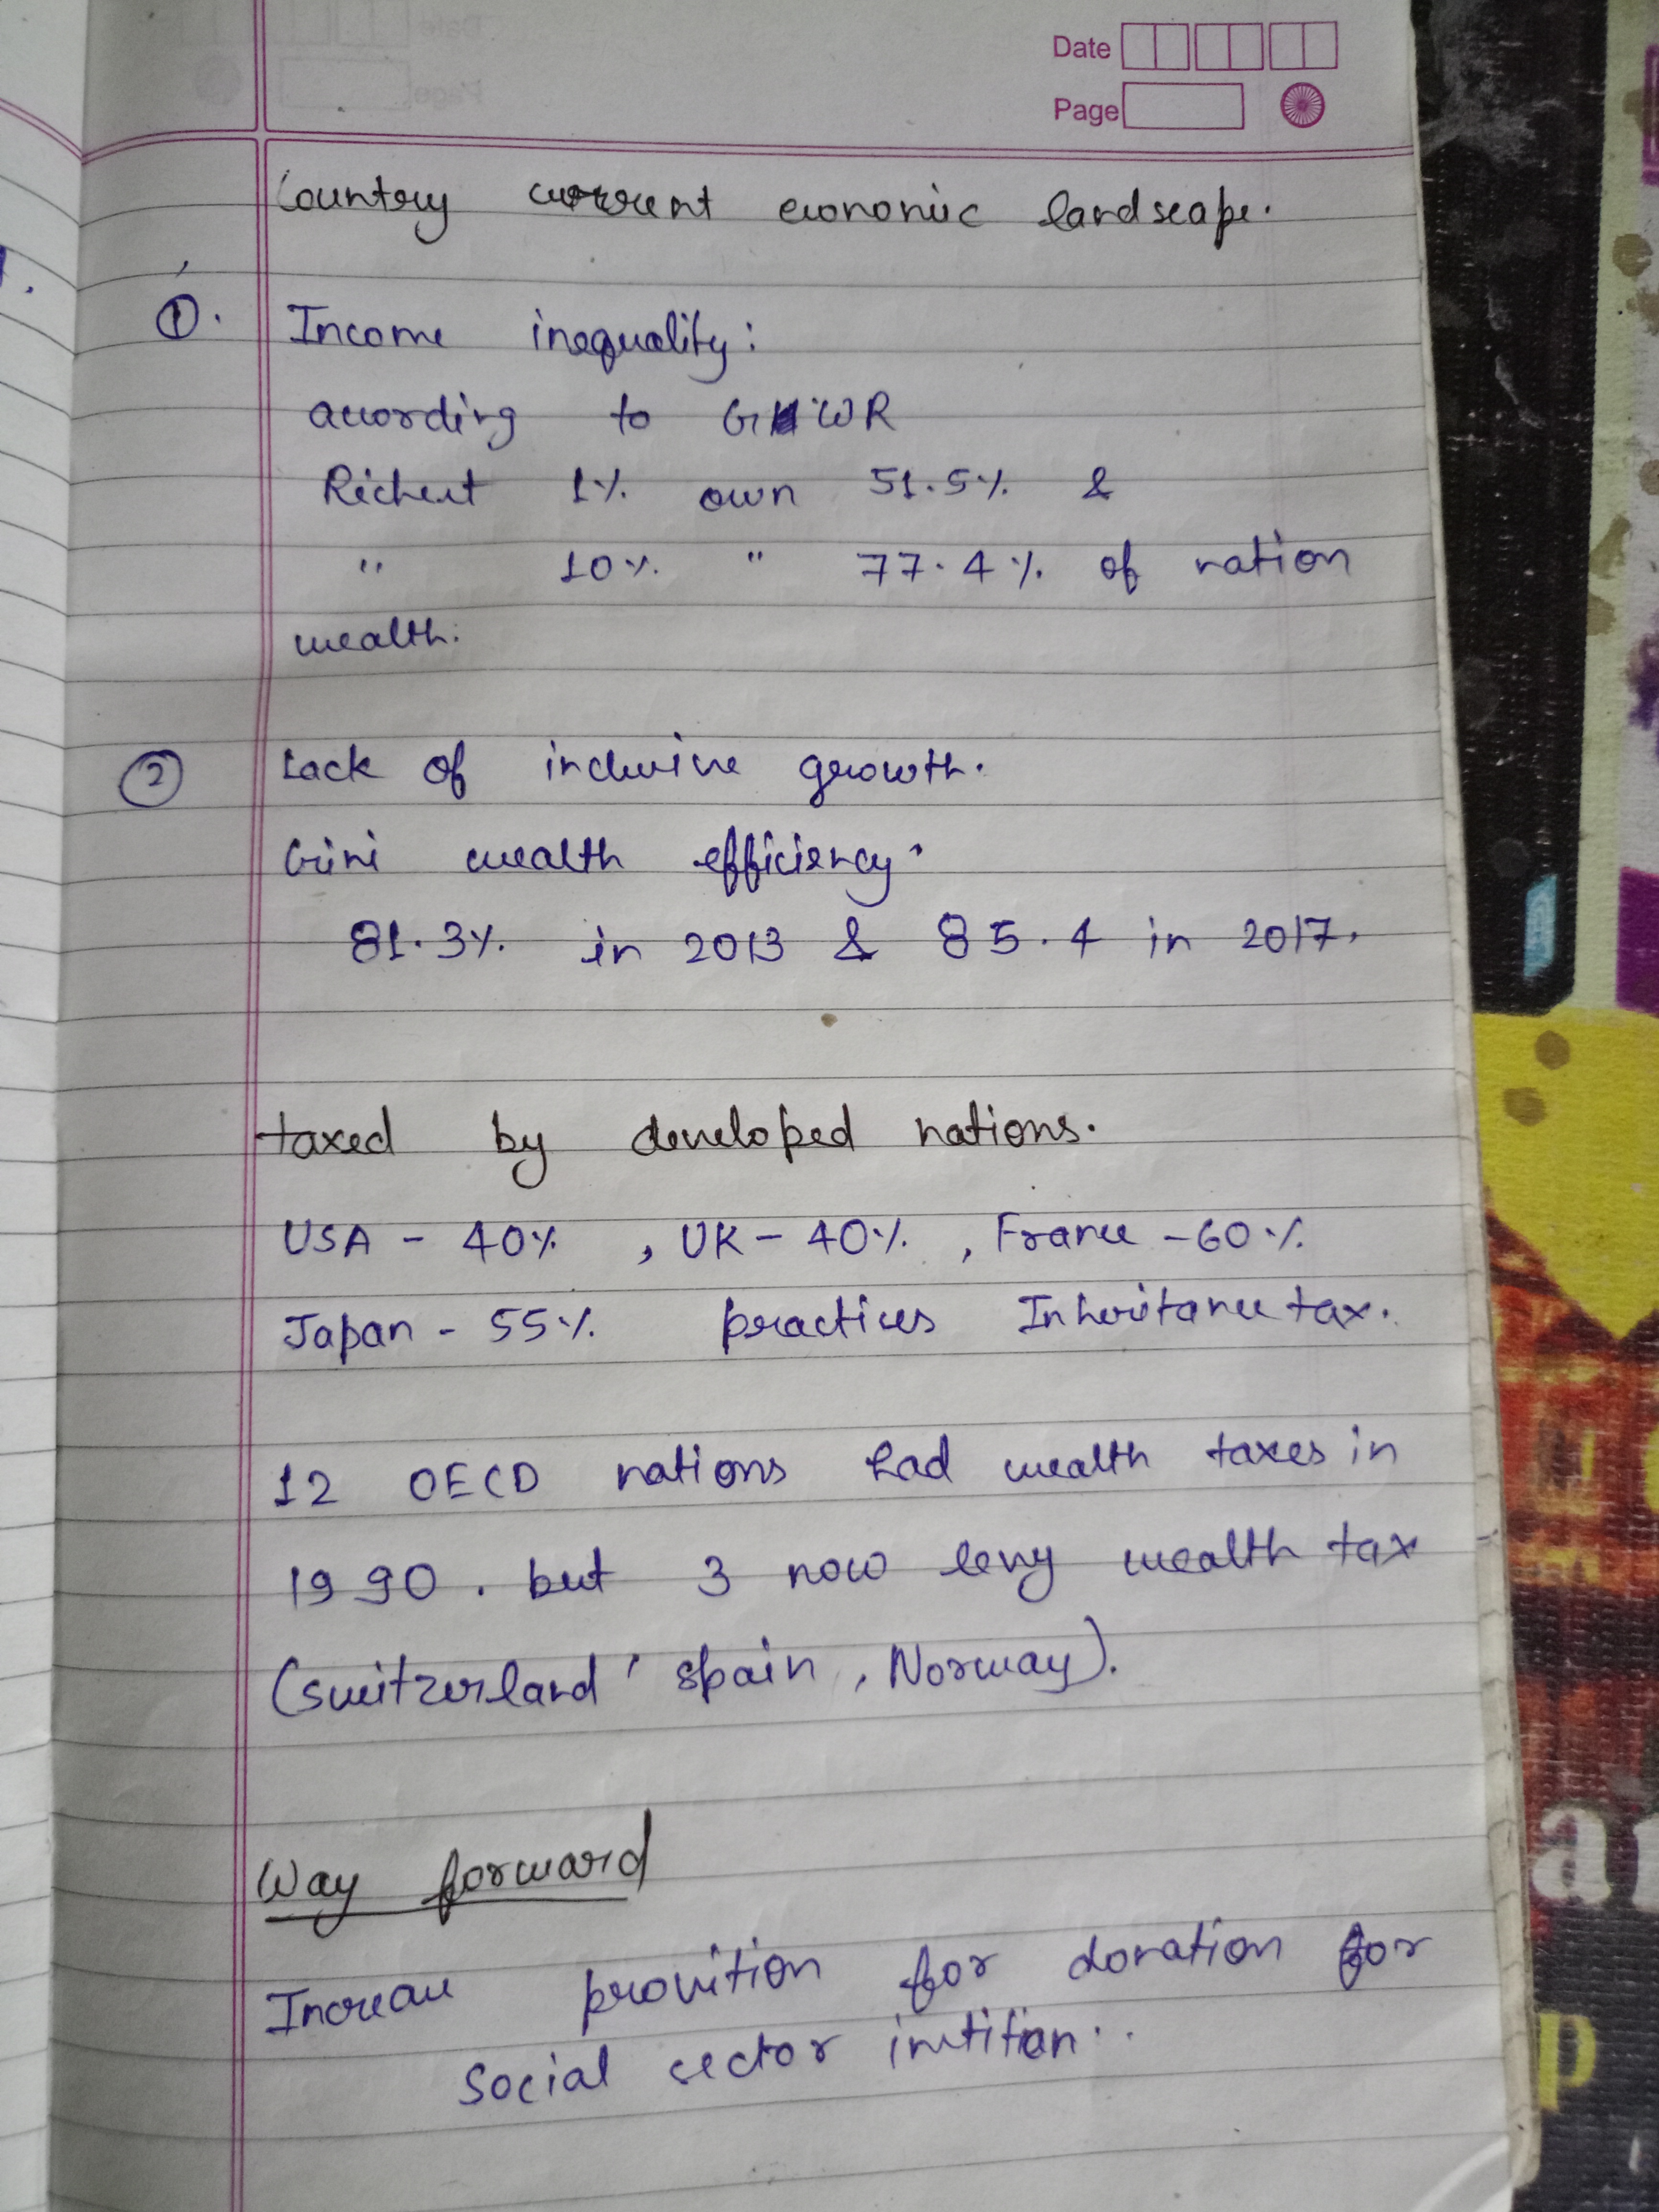 Date
Page
Country current economic landscape.
①. Income inequality:
according to GWR
Richest 1% own 51.5% &
" 10% " 77.4% of nation
wealth.
② Lack of inclusive growth.
Gini wealth efficiency.
81.3% in 2013 & 85.4 in 2017.
taxed by developed nations.
USA - 40%, UK - 40%, France - 60%
Japan - 55% practices Inheritance tax.
12 OECD nations had wealth taxes in
1990. but 3 now levy wealth tax
(Switzerland, Spain, Norway).
Way forward
Increase provition for donation for
social sector
ar
p